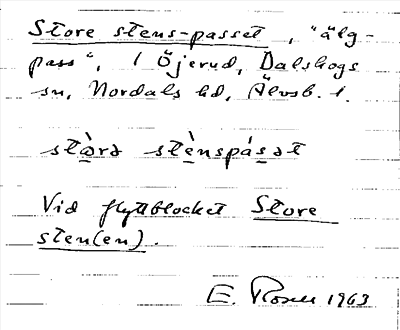 Store stens-passet, "älg-
pass", i Öjerud, Dalskogs
sn, Nordals hd, Älvsb. l.
stò̱rə stè̱nspá̱sət
Vid flyttblocket Store
sten(en).
E. Rosen 1963